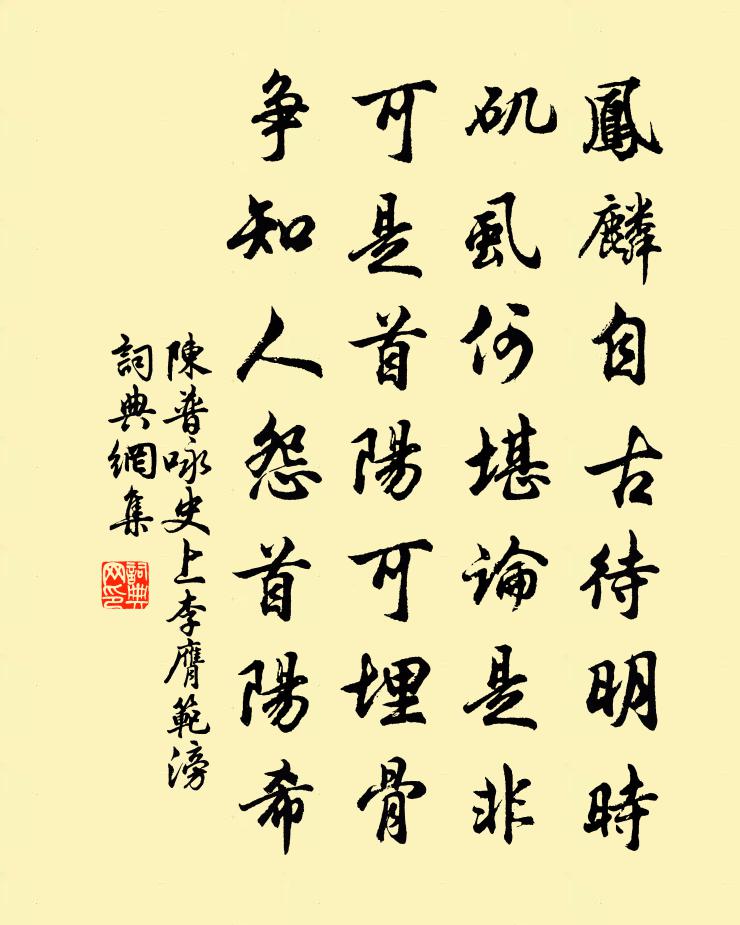 鳳麟自古待明時
矶虱何堪論是非
可是首陽可埋骨
爭知人怨首陽希
陳普咏史上李膺範滂
詞典網集
詞典网印